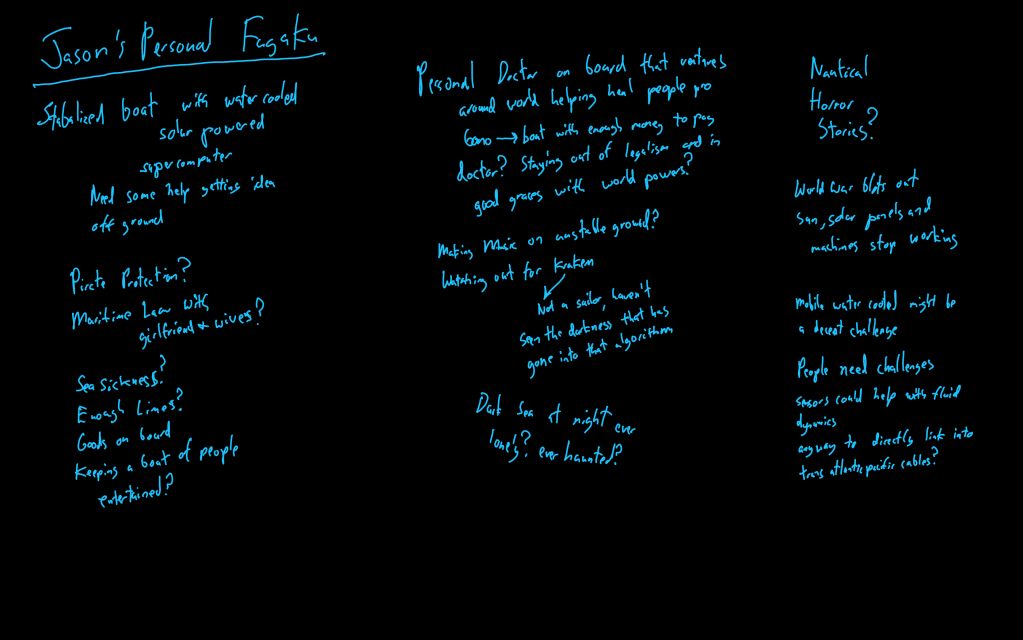 Jason's Personal Fugaku
Stabalized boat with water cooled
solar powered
supercomputer
Need some help getting idea
off ground
Pirate Protection?
Maritime Law with
girlfriend & wives?
Sea sickness?
Enough Limes?
Goods on board
Keeping a boat of people
entertained?
Personal Doctor on board that ventures
around world helping heal people pro
bono → boat with enough money to pay
doctor? Staying out of legalism and in
good graces with world powers?
Making Music on unstable ground?
Watching out for Kraken
Not a sailor, haven't
seen the darkness that has
gone into that algorithm
Dark Sea at night ever
lonely? ever haunted?
Nautical
Horror
Stories?
World War blots out
sun, solar panels and
machines stop working
mobile water cooled might be
a decent challenge
People need challenges
sensors could help with fluid
dynamics
anyway to directly link into
trans atlantic pacific cables?